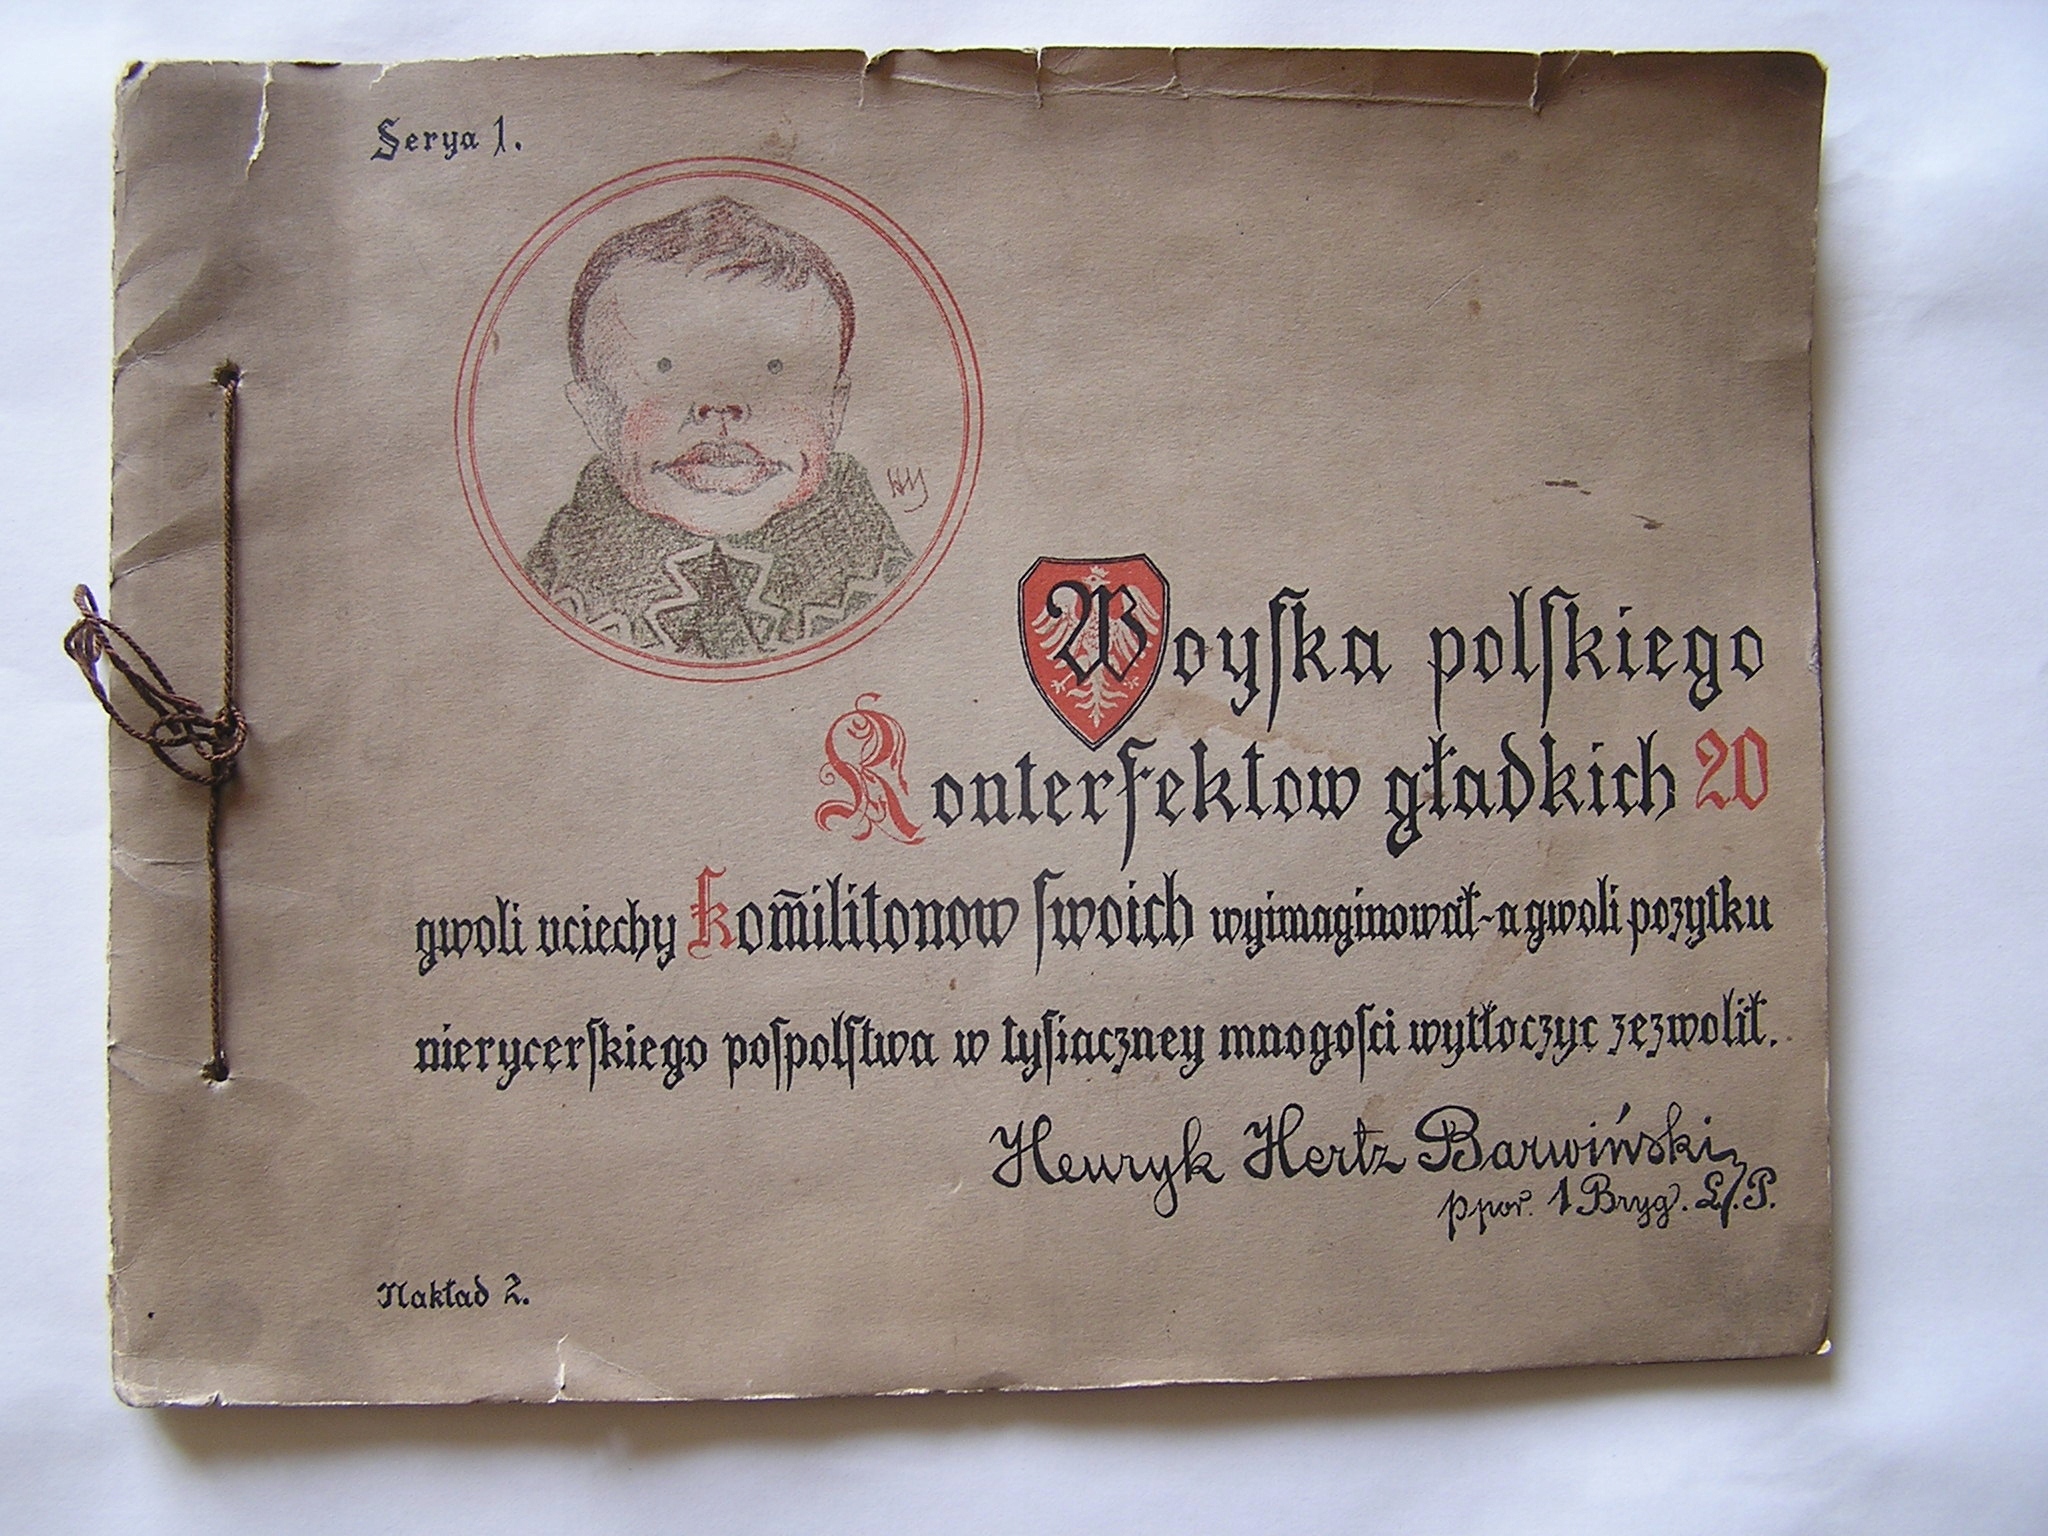 Serya 1.
HH
Woyſka polſkiego
Konterfektow gładkich 20
gwoli uciechy kom̄ilitonow ſwoich wyimaginował-a gwoli pozytku
nierycerſkiego poſpolſtwa w tyſiaczney mnogoſci wytłoczyc zezwolił.
Henryk Hertz Barwiński
ppor. 1 Bryg. L. P.
Nakład 2.